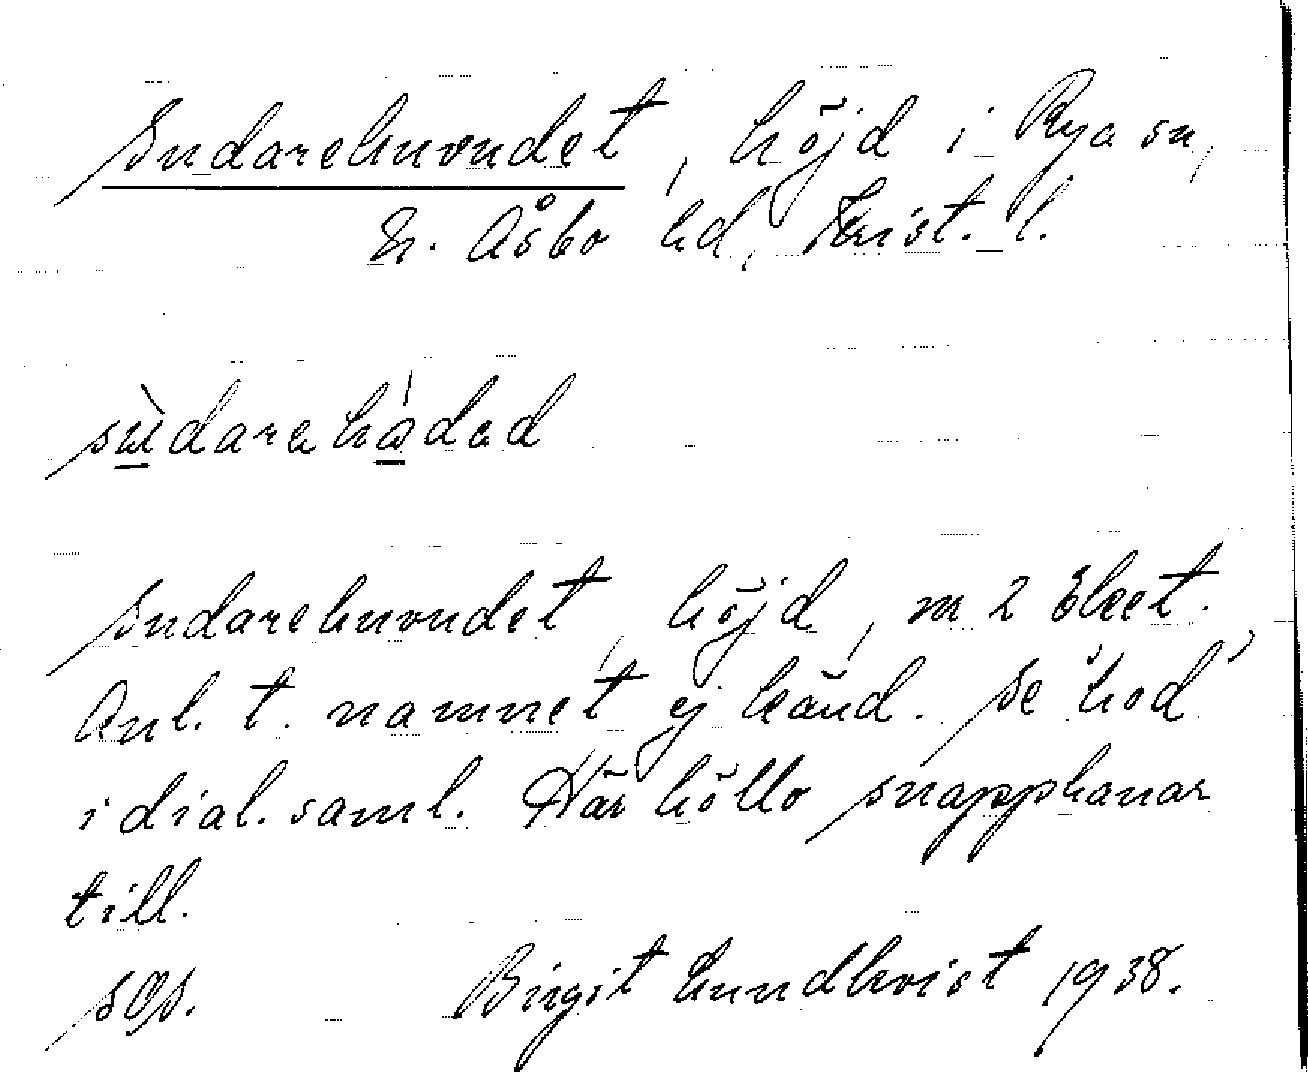 Sudarehuvudet, höjd i Rya sn,
N. Åsbo hd, Krist. l.
Sudarehuvudet, höjd, m 2 Ekeet.
Anl. t. namnet ej känd. Se "hod"
i dial. saml. Här höllo snapphanar
till.
sOs. Birgit Lundkvist 1938.